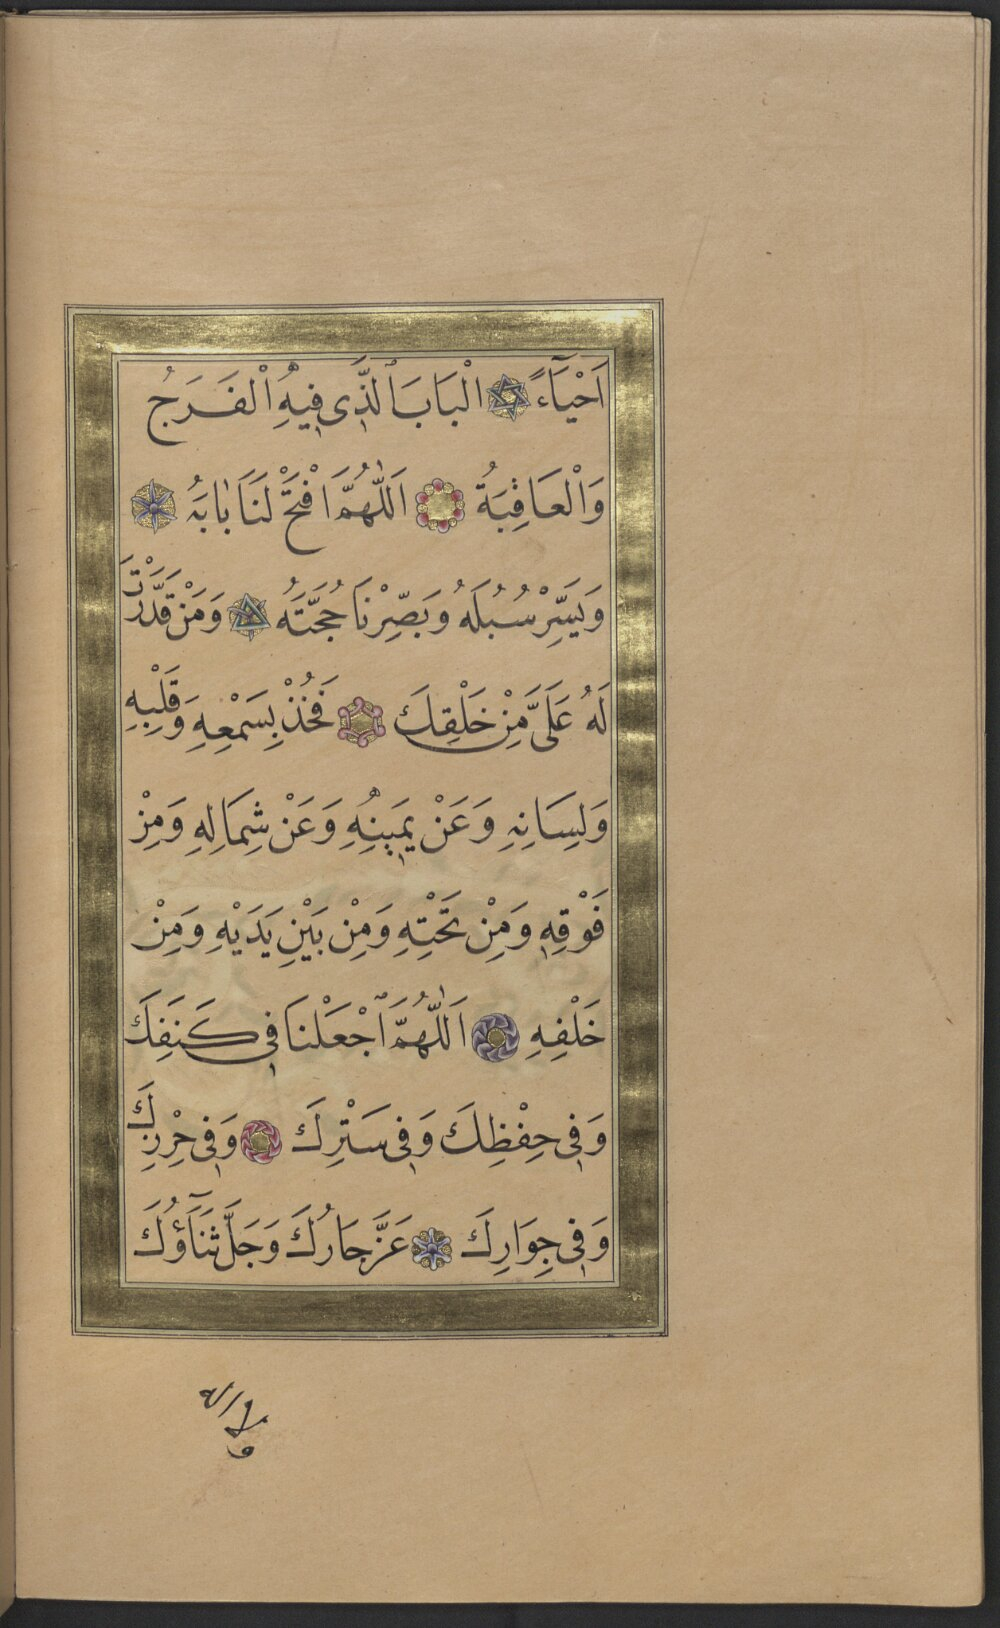 اَحْيَآءً اَلْبَابَ الَّذِى فِيهِ الْفَرَجُ
وَالْعَافِيَةُ اَللّٰهُمَّ افْتَحْ لَنَا بَابَهُ
وَيَسِّرْ سُبُلَهُ وَبَصِّرْنَا حُجَّتَهُ وَمَنْ قَدَّرْتَ
لَهُ عَلَىَّ مِنْ خَلْقِكَ فَخُذْ بِسَمْعِهِ وَقَلْبِهِ
وَلِسَانِهِ وَعَنْ يَمِينِهِ وَعَنْ شِمَالِهِ وَمِنْ
فَوْقِهِ وَمِنْ تَحْتِهِ وَمِنْ بَيْنِ يَدَيْهِ وَمِنْ
خَلْفِهِ اَللّٰهُمَّ اجْعَلْنَا فِى كَنَفِكَ
وَفِى حِفْظِكَ وَفِى سَتْرِكَ وَفِى حِرْزِكَ
وَفِى جِوَارِكَ عَزَّ جَارُكَ وَجَلَّ ثَنَآؤُكَ
ولا اله